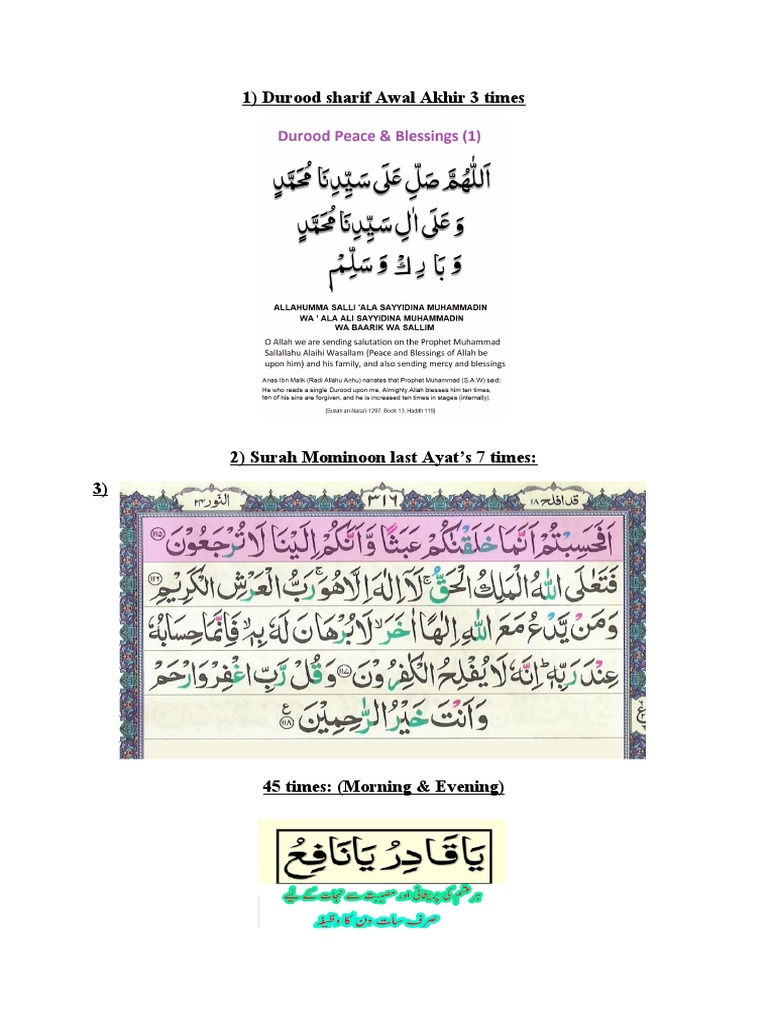 1) Durood sharif Awal Akhir 3 times
Durood Peace & Blessings (1)
اَللّٰهُمَّ صَلِّ عَلٰى سَيِّدِنَا مُحَمَّدٍ
وَ عَلٰى اٰلِ سَيِّدِنَا مُحَمَّدٍ
وَ بَا رِكْ وَ سَلِّمْ
ALLAHUMMA SALLI 'ALA SAYYIDINA MUHAMMADIN
WA ' ALA ALI SAYYIDINA MUHAMMADIN
WA BAARIK WA SALLIM
O Allah we are sending salutation on the Prophet Muhammad
Sallallahu Alaihi Wasallam (Peace and Blessings of Allah be
upon him) and his family, and also sending mercy and blessings
Anas Ibn Malik (Radi Allahu Anhu) narrates that Prophet Muhammad (S.A.W) said:
He who reads a single Durood upon me, Almighty Allah blesses him ten times,
ten of his sins are forgiven, and he is increased ten times in stages (internally).
[Sunan an-Nasa'i 1297, Book 13, Hadith 119]
2) Surah Mominoon last Ayat’s 7 times:
3)
قد افلح ١٨ ٣١٦ النور ٢٣
اَفَحَسِبْتُمْ اَنَّمَا خَلَقْنٰكُمْ عَبَثًا وَّاَنَّكُمْ اِلَيْنَا لَا تُرْجَعُوْنَ ١١٥
فَتَعٰلَى اللّٰهُ الْمَلِكُ الْحَقُّ ۚ لَاۤ اِلٰهَ اِلَّا هُوَ ۚ رَبُّ الْعَرْشِ الْكَرِيْمِ ١١٦
وَمَنْ يَّدْعُ مَعَ اللّٰهِ اِلٰهًا اٰخَرَ ۙ لَا بُرْهَانَ لَهٗ بِهٖ ۙ فَاِنَّمَا حِسَابُهٗ
عِنْدَ رَبِّهٖ ؕ اِنَّهٗ لَا يُفْلِحُ الْكٰفِرُوْنَ ١١٧ وَقُلْ رَّبِّ اغْفِرْ وَارْحَمْ
وَاَنْتَ خَيْرُ الرّٰحِمِيْنَ ١١٨
45 times: (Morning & Evening)
يَا قَادِرُ يَا نَافِعُ
ہر قسم کی پریشانی اور مصیبت سے نجات کے لیے
صرف سات دن کا وظیفہ